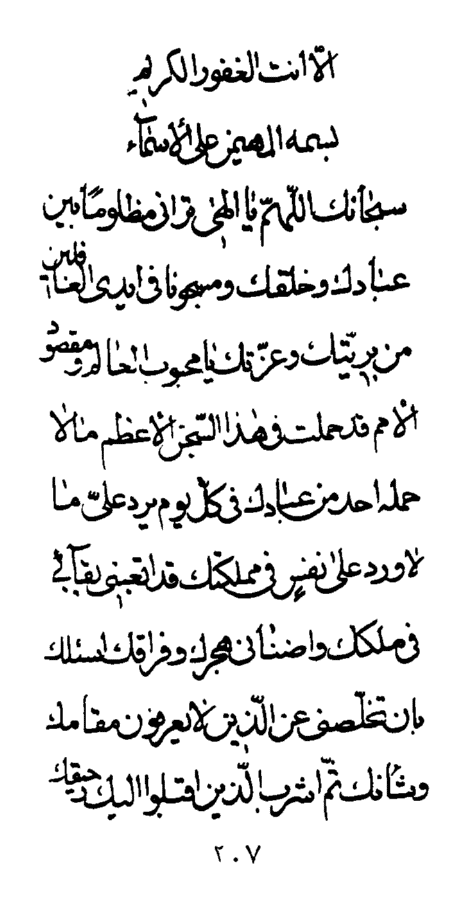 الّا انت الغفور الكريم
بسمه المهيمن على الأسمآء
سبحانك اللّهمّ يا الهى ترانى مظلومًا بين
عبادك و خلقك و مسجونا فى ايدى الغافلين
من بريّتك و عزّتك يا محبوب العالم و مقصود
الامم قد حملت فى هذا السّجن الاعظم ما لا
حمله احد من عبادك فى كلّ يوم يرد علىّ ما
لا ورد على نفسٍ فى مملكتك قد اتعبنى بقآئى
فى ملكك و اضنانى هجرك و فراقك اسئلك
بان تخلّصنى عن الّذين لا يعرفون مقامك
و شأنك ثمّ اشرب الّذين اقبلوا اليك رحيقك
٢٠٧